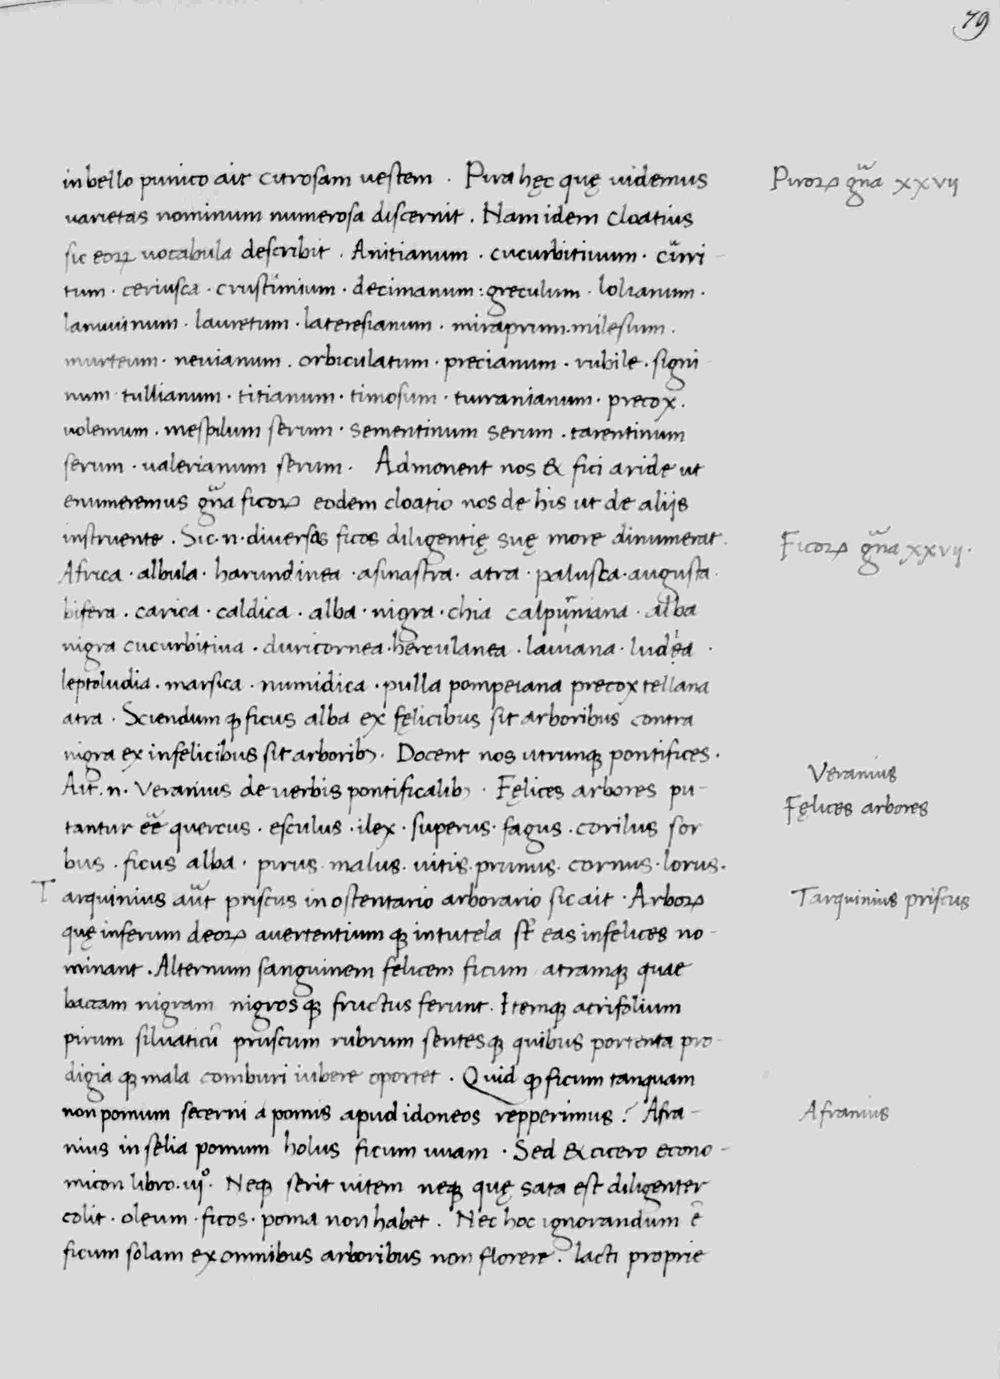 79
in bello punico ait citrosam uestem . Pira hęc quę uidemus
Piroꝝ gña xxvij
varietas nominum numerosa discernit . Nam idem cloatius
sic eoꝝ vocabula describit . Anitianum . cucurbitiuum . cirri-
tum . ceriusca . crustimium . decimanum : greculum . lolianum .
lanuuinum . lauretum . lateresianum . mirapium . milesium .
murteum . neuianum . orbiculatum . precianum . rubile . signi-
num tullianum . titianum . timosum . turranianum . precox .
uolemum . mespilum serum . sementinum serum . tarentinum
serum . valerianum serum . Admonent nos & fici aride ut
enumeremus gña ficoꝝ eodem cloatio nos de his ut de alijs
instruente . Sic . n . diuersas ficos diligentię suę more dinumerat .
Ficoꝝ gña xxvij .
Africa . albula . harundinea . asinastra . atra . palusca . augusta .
bifera . carica . caldica . alba . nigra . chia calpurniana . alba
nigra cucurbitiua . duricornea . herculanea . liuiana . ludea .
leptoludia . marsica . numidica . pulla pompeiana precox tellana
atra . Sciendum ꝙ ficus alba ex fęlicibus sit arboribus contra
nigra ex infelicibus sit arborib; . Docent nos utrunqꝫ pontifices .
Ait . n . Veranius de uerbis pontificalib; . Fęlices arbores pu-
Veranius
Fęlices arbores
tantur eē quercus . esculus . ilex . superus . fagus . corilus sor
bus . ficus alba . pirus . malus . uitis . prunus . cornus . lotus .
Tarquinius aūt priscus in ostentario arborario sic ait . Arboꝝ
Tarquinius priscus
quę inferum deoꝝ auertentium qꝫ in tutela sūt eas infelices no-
minant . Alternum sanguinem felicem ficum atramqꝫ quae
baccam nigram nigrosqꝫ fructus ferunt . Itemqꝫ acrifolium
pirum siluaticū pruscum rubrum sentesqꝫ quibus portenta pro-
digia qꝫ mala comburi iubere oportet . Quid ꝙ ficum tanquam
non pomum secerni a pomis apud idoneos repperimus ? Afra-
Afranius
nius in selia pomum holus ficum uuam . Sed & cicero econo-
micon libro . iijo . Neqꝫ serit uitem neqꝫ quę sata est diligenter
colit . oleum . ficos . poma non habet . Nec hoc ignorandum ē
ficum solam ex omnibus arboribus non florere . lacti proprie